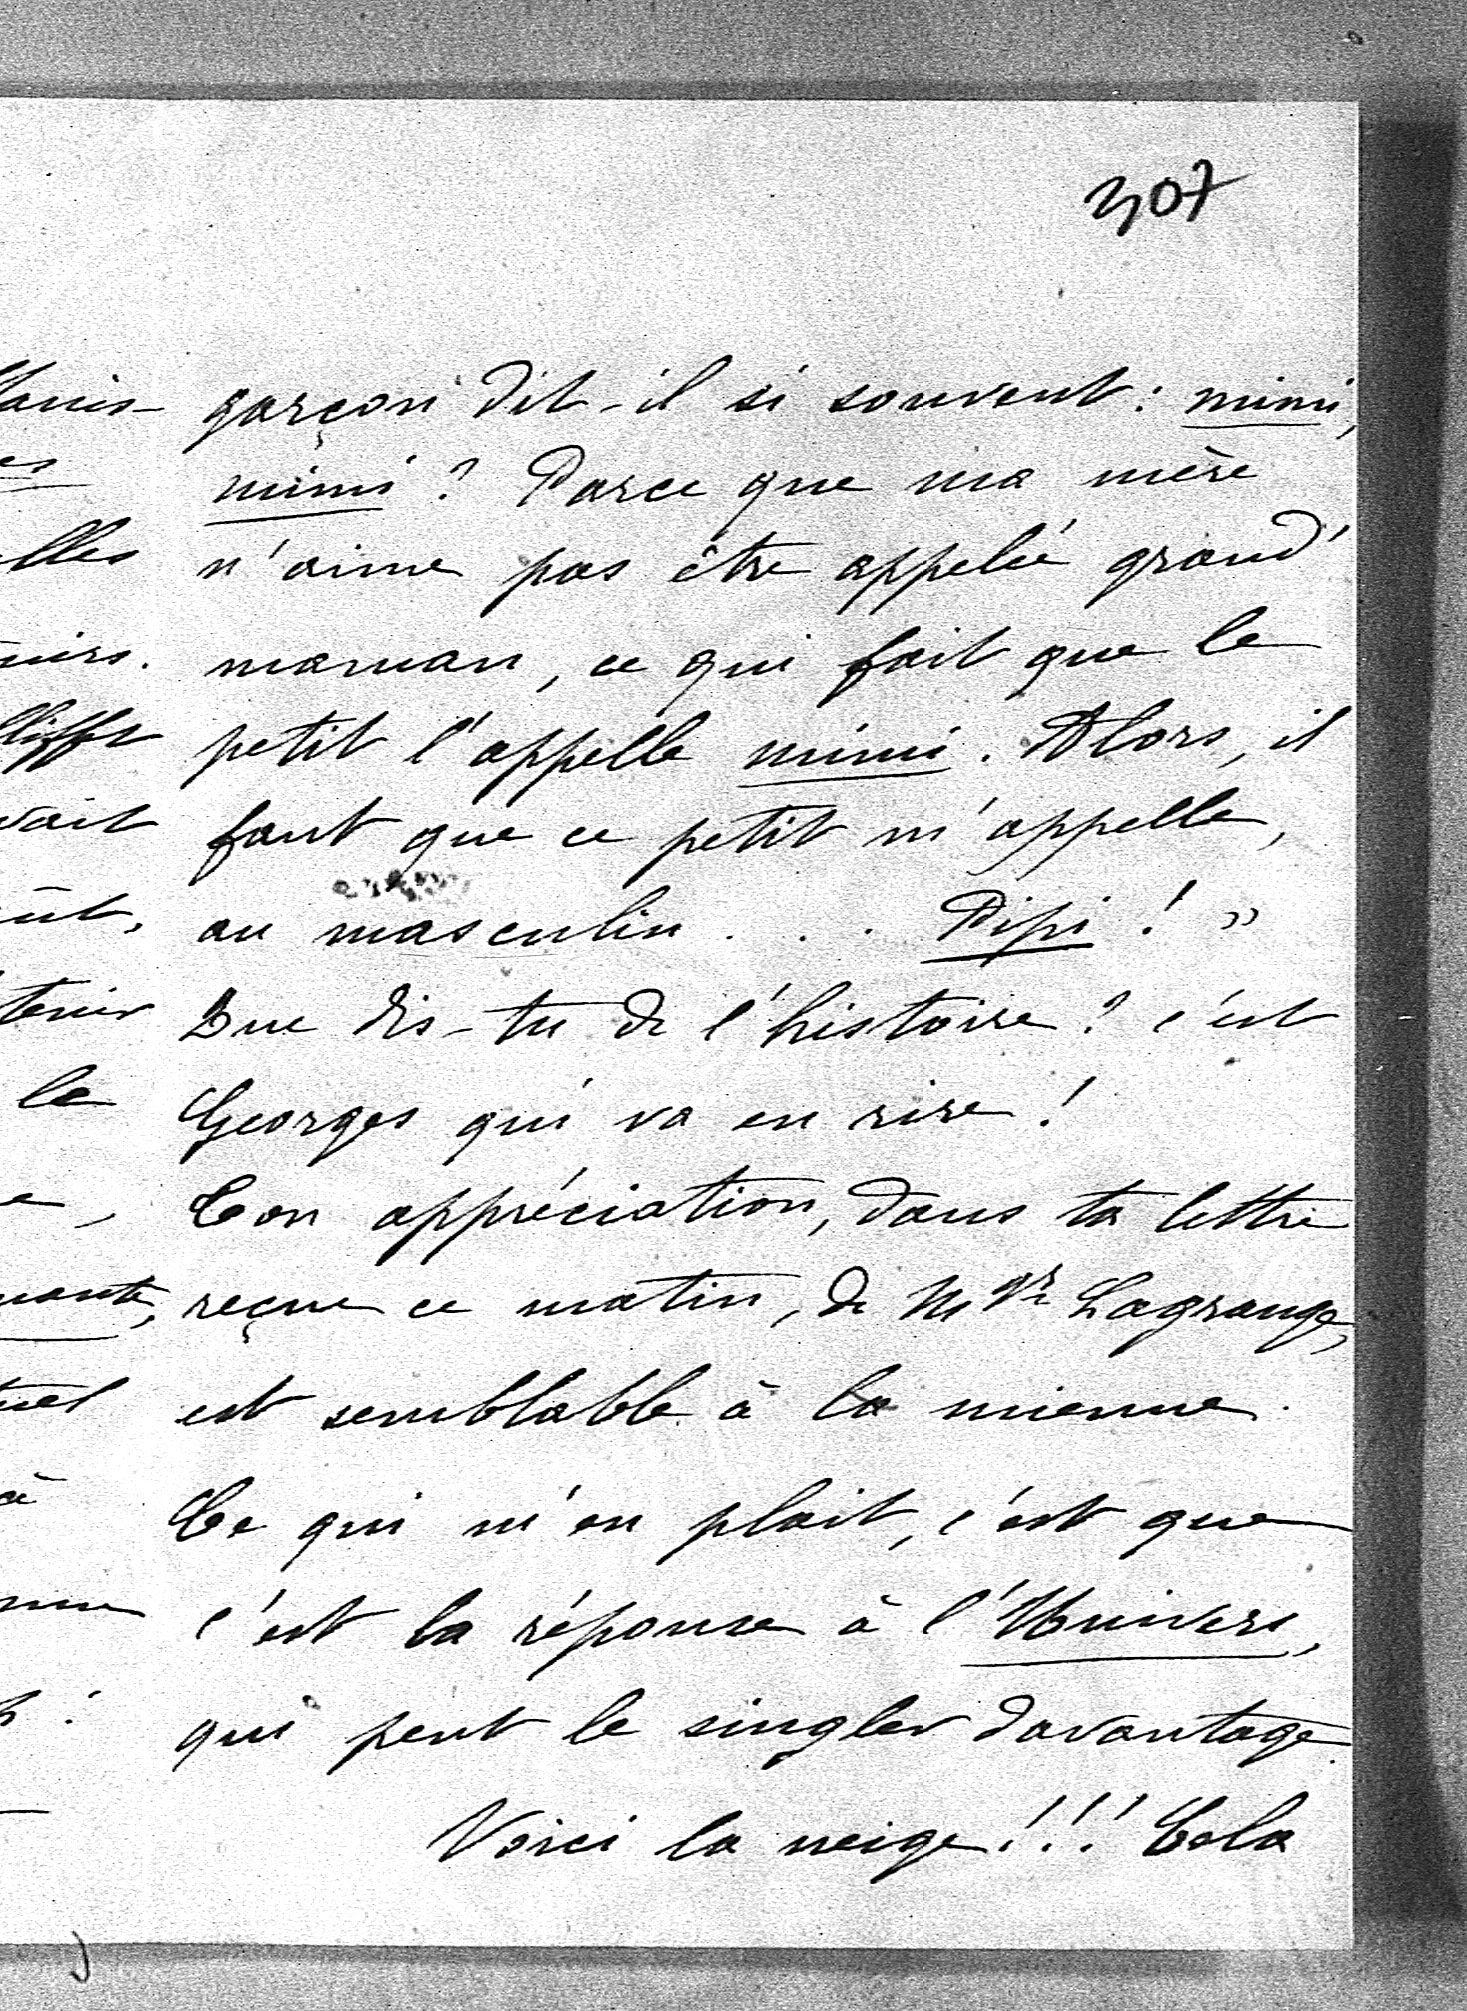 307
garçon dit-il si souvent : mimi,
mimi ? Parce que ma mère
n'aime pas être appelée grand'
maman, ce qui fait que le
petit l'appelle mimi. Alors, il
faut que ce petit m'appelle,
au masculin . . . Pipi ! »
Que dis-tu de l'histoire ? c'est
Georges qui va en rire !
Ton appréciation, dans ta lettre
reçue ce matin, de Mgr Lagrange,
est semblable à la mienne.
Ce qui m'en plait, c'est que
c'est la réponse à l'Univers,
qui peut le cingler davantage.
Voici la neige !!! Cela